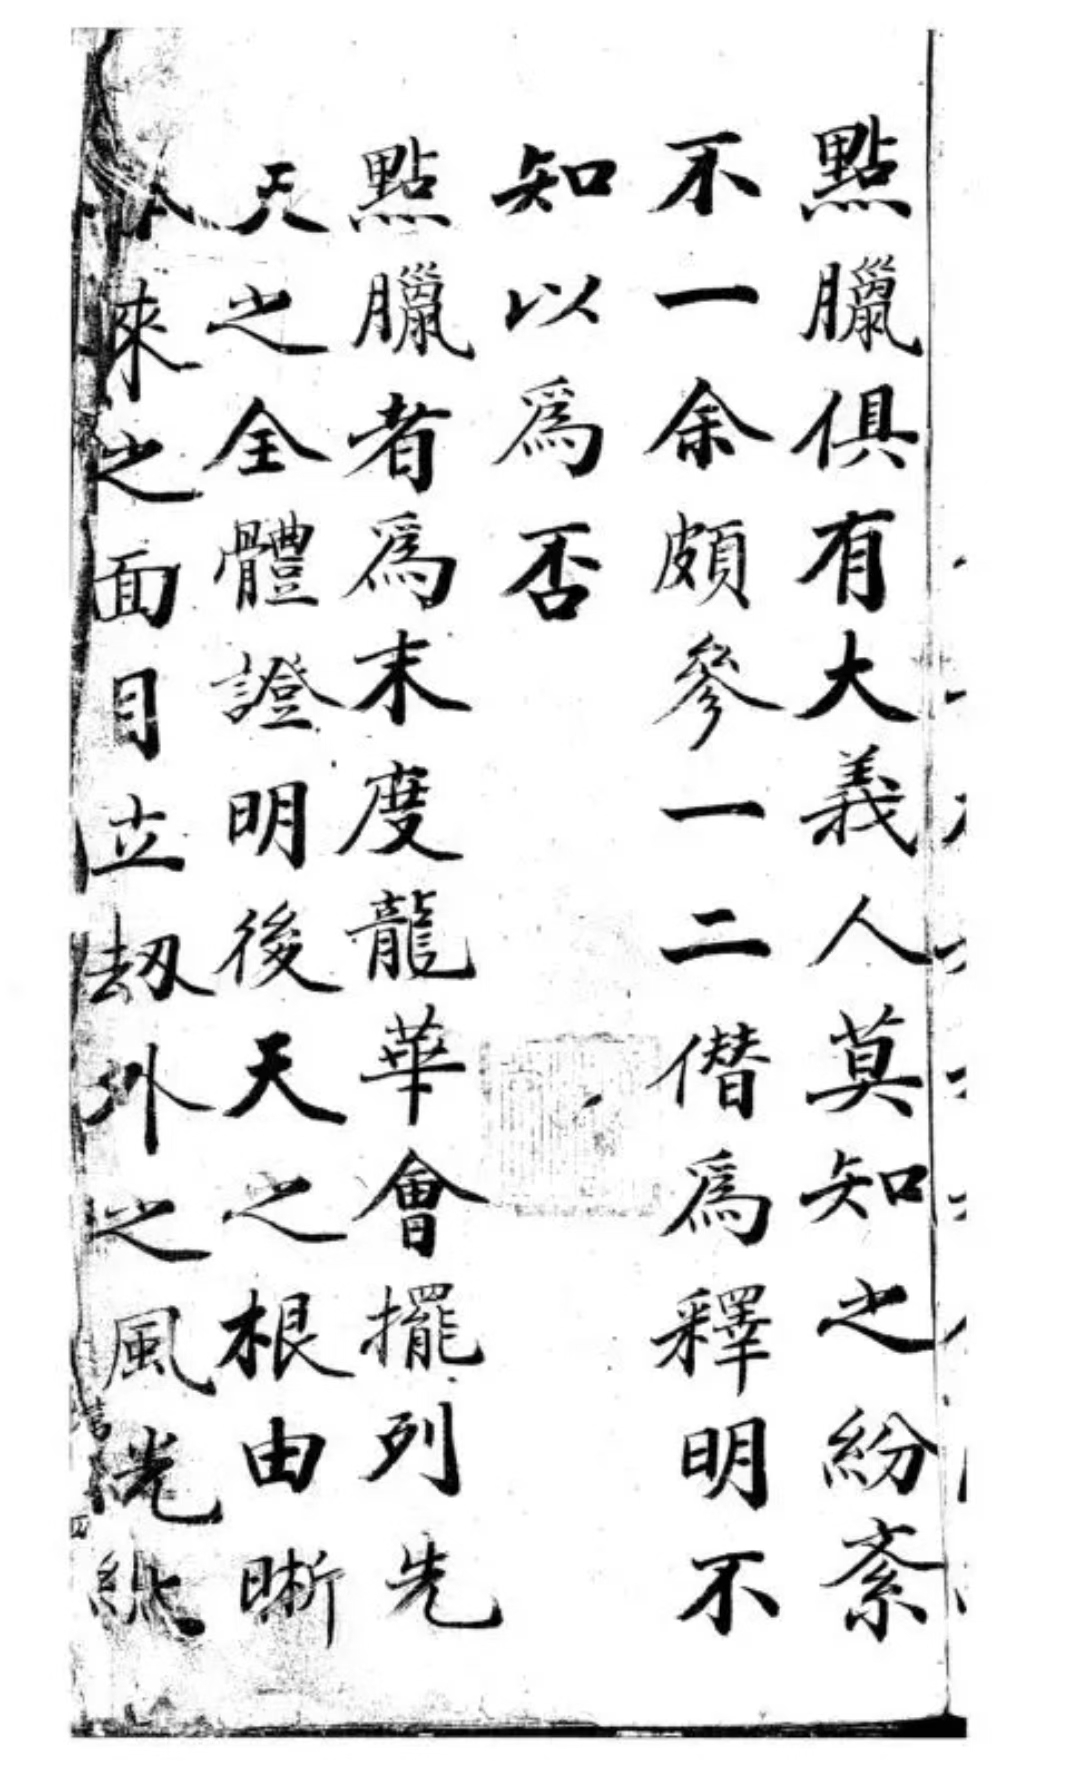 點臘俱有大義人莫知之紛紊
不一余頗參一二僭為釋明不
知以為否
點臘者為末度龍華會擺列先
天之全體證明後天之根由晰
本來之面目立劫外之風光